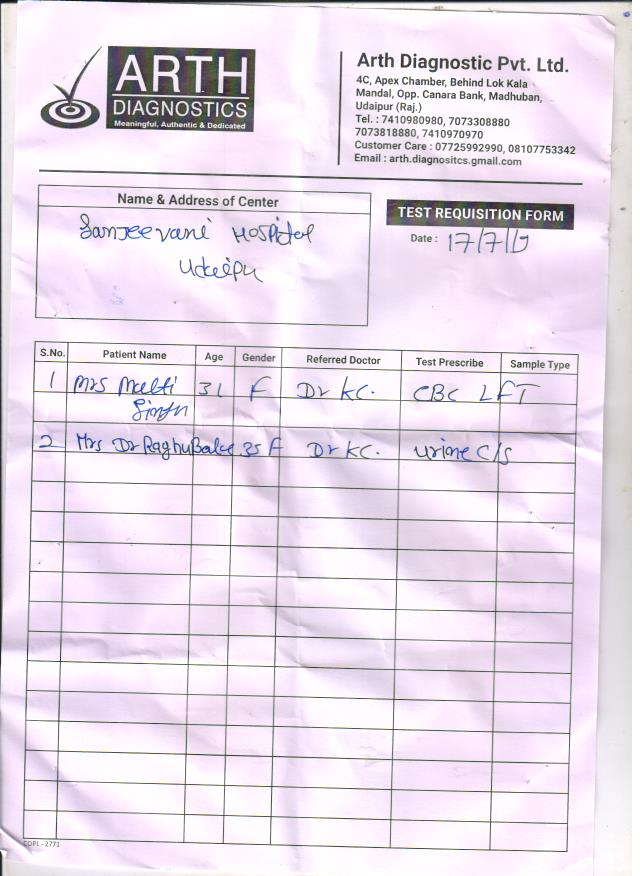 ARTH
DIAGNOSTICS
Meaningful, Authentic & Dedicated
Arth Diagnostic Pvt. Ltd.
4C, Apex Chamber, Behind Lok Kala
Mandal, Opp. Canara Bank, Madhuban,
Udaipur (Raj.)
Tel. : 7410980980, 7073308880
7073818880, 7410970970
Customer Care : 07725992990, 08107753342
Email : arth.diagnositcs.gmail.com
Name & Address of Center
Sanjeevani Hospital
TEST REQUISITION FORM
Date : 17/7/19
S.No. Patient Name Age Gender Referred Doctor Test Prescribe Sample Type
1 Mrs Malti 31 F Dr KC. CBC LFT
Singh
2 Mrs Dr Raghu 35 F Dr KC. Urine C/S
COPL - 2771